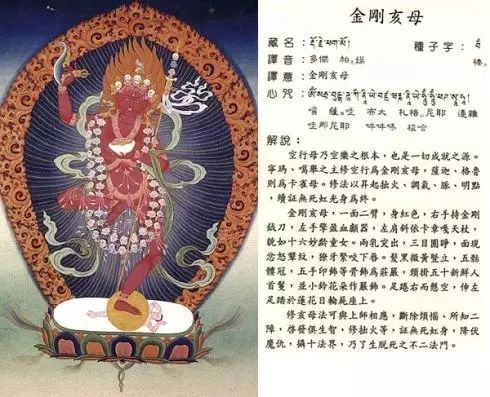 金剛亥母
藏名：རྡོ་རྗེ་ཕག་མོ། 種子字：བཾ
譯音：多傑 帕嫫 棒
譯意：金剛亥母
心咒：
薩哇 布大 扎格尼耶
哇那尼耶 吽吽呸 梭哈
解說：
空行母乃空樂之根本，也是一切成就之源。
寧瑪、噶舉之主修空行為金剛亥母，薩迦、格魯
則為卡雀母。修法以昇起拙火、調氣、脈、明點
，續証無死虹光身為終。
金剛亥母，一面二臂，身紅色，右手持金剛
鉞刀，左手擎盈血顱器，左肩斜依卡章嘎天杖，
貌如十六妙齡童女。兩乳突出，三目圓睜，面現
忿怒顰紋，獠牙緊咬下唇。髮黑微黃豎立，五骷
髏冠，五手印飾等骨飾為莊嚴，頸掛五十新鮮人
首鬘，並小鈴花朵作嚴飾。足踡右而懸空，伸左
足踏於蓮花日輪屍座上。
修亥母法可與上師相應，斷除煩惱、所知二
障，啓發俱生智，修拙火等，証無死虹身，降伏
魔仇，攝十法界，乃了生脫死之不二法門。